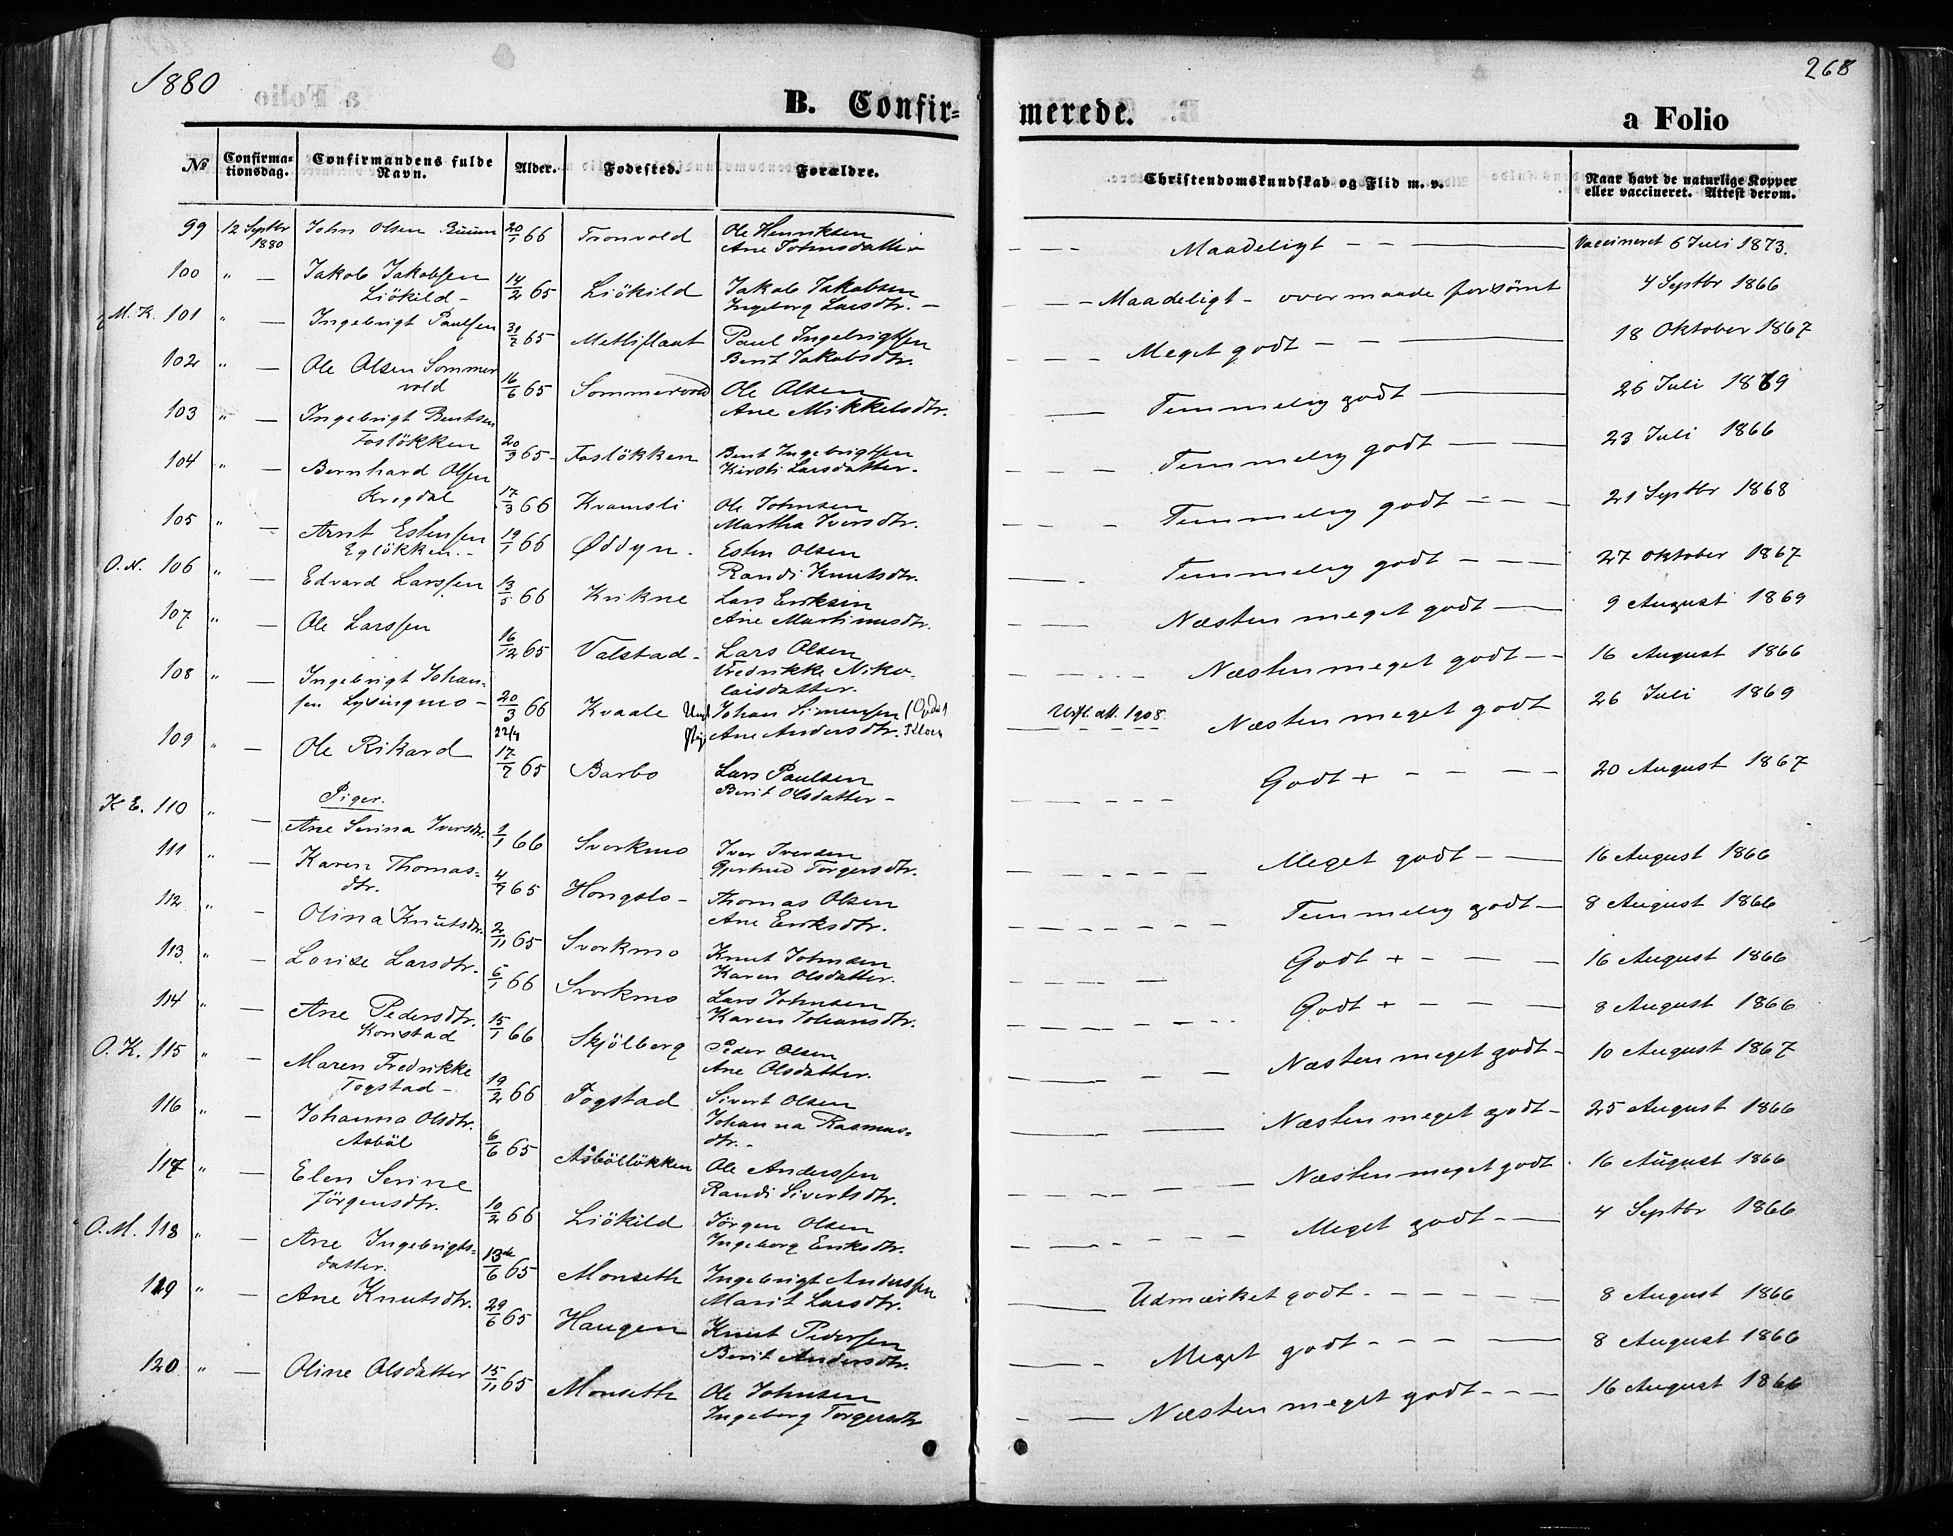 1880
268
B. Confir=
merede.
a Folio
№ Confirma=tionsdag. Confirmandens fulde Navn. Alder. Fødested. Forældre. Christendomskundskab og Flid m. v. Naar havt de naturlige Kopper eller vaccineret. Attest derom.
99 12 Septbr 1880 John Olsen 20/1 66 Tronvold Ole Henriksen
Ane Johnsdatter Maadeligt Vaccineret 6 Juli 1873.
100 " — Jakob Jakobsen
Liökild 14/2 65 Liökild Jakob Jakobsen
Ingeborg Larsdtr. Maadeligt - overmaade forsömt 4 Septbr 1866
M.K. 101 " — Ingebrigt Paulsen 65 Metliflaat Paul Ingebrigtsen
Berit Jakobsdtr. Meget godt 18 Oktober 1867
102 " — Ole Olsen Sommer
vold 16/6 65 Sommervold Ole Olsen
Ane Mikkelsdtr. Temmelig godt 26 Juli 1869
103 " — Ingebrigt Bentsen
Foslökken 20/3 65 Foslökken Bent Ingebrigtsen
Kirsti Larsdatter. Temmelig godt 23 Juli 1866
104 " — Bernhard Olsen
Krogdal 17/3 66 Kvamsli Ole Johnsen
Martha Iversdtr. Temmelig godt 21 Septbr 1868
105 " — Arnt Estensen
Eglökken 19/1 66 Øddyn. Esten Olsen
Randi Knutsdtr. Temmelig godt 27 Oktober 1867
O.N. 106 " — Edvard Larssen 13/5 66 Krikne Lars Eriksen
Ane Martinusdtr. Næsten meget godt 9 August 1869
107 " — Ole Larssen 16/12 65 Valstad Lars Olsen
Fredrikke Niko-
laisdatter. Næsten meget godt 16 August 1866
108 " — Ingebrigt Johan-
sen Lysingmo 20/3 66 Kvaale Johan Simensen
Ane Andersdtr. Utfl. att. 1908. Næsten meget godt 26 Juli 1869
109 " — Ole Rikard 22/4
17/7 65 Barbo Lars Paulsen
Berit Olsdatter Godt + 20 August 1867
Piger.
K E. 110 " — Ane Serina Iversdtr. 1/1 66 Svorkmo Iver Iversen
Gjertrud Torgersdtr. Meget godt 16 August 1866
111 " — Karen Thomas-
dtr. 4/7 65 Hongslo Thomas Olsen
Ane Eriksdtr. Temmelig godt 8 August 1866
112 " — Olina Knutsdtr. 2/11 65 Svorkmo Knut Johnsen
Karen Olsdatter. Godt + 16 August 1866
113 " — Lovise Larsdtr. 6/1 66 Svorkmo Lars Johnsen
Karen Johansdtr. Godt + 8 August 1866
114 " — Ane Pedersdtr.
Korstad 15/1 66 Skjölberg Peder Olsen
Ane Olsdatter. Næsten meget godt 10 August 1867
O.K. 115 " — Maren Fredrikke
Togstad 19/2 66 Fogstad Sivert Olsen
Johanna Rasmus-
dtr. Næsten meget godt 25 August 1866
116 " — Johanna Olsdtr.
Asböl 6/6 65 Asböllökken Ole Anderssen
Randi Sivertsdtr. Næsten meget godt 16 August 1866
117 " — Elen Serine
Jörgensdtr. 10/2 66 Liökild Jörgen Olsen
Ingeborg Eriksdtr. Meget godt 4 Septbr 1866
O.M. 118 " — Ane Ingebrigts-
datter. 13/6 65 Monseth Ingebrigt Anderssen
Marit Larsdtr. Udmærket godt 8 August 1866
119 " — Ane Knutsdtr. 29/6 65 Haugen Knut Pedersen
Berit Andersdtr. Meget godt 8 August 1866
120 " — Oline Olsdatter 15/11 65 Monseth Ole Johnsen
Ingeborg Torgersdtr Næsten meget godt 16 August 1866